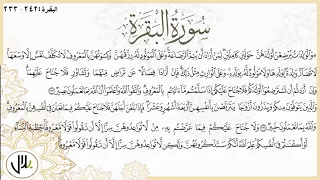 البقرة: ٢٤٢ - ٢٣٣
سورة البقرة
والوالدات يرضعن أولادهن حولين كاملين لمن أراد أن يتم الرضاعة وعلى المولود له رزقهن وكسوتهن بالمعروف لا تكلف نفس إلا وسعها
لا تضار والدة بولدها ولا مولود له بولده وعلى الوارث مثل ذلك فإن أرادا فصالا عن تراض منهما وتشاور فلا جناح عليهما
وإن أردتم أن تسترضعوا أولادكم فلا جناح عليكم إذا سلمتم ما آتيتم بالمعروف واتقوا الله واعلموا أن الله بما تعملون بصير
والذين يتوفون منكم ويذرون أزواجا يتربصن بأنفسهن أربعة أشهر وعشرا فإذا بلغن أجلهن فلا جناح عليكم فيما فعلن في أنفسهن بالمعروف
والله بما تعملون خبير ولا جناح عليكم فيما عرضتم به من لا تواعدوهن سرا إلا أن تقولوا قولا معروفا خطبة النساء
أو أكننتم في أنفسكم علم الله أنكم ستذكرونهن ولكن لا تواعدوهن سرا إلا أن تقولوا قولا معروفا